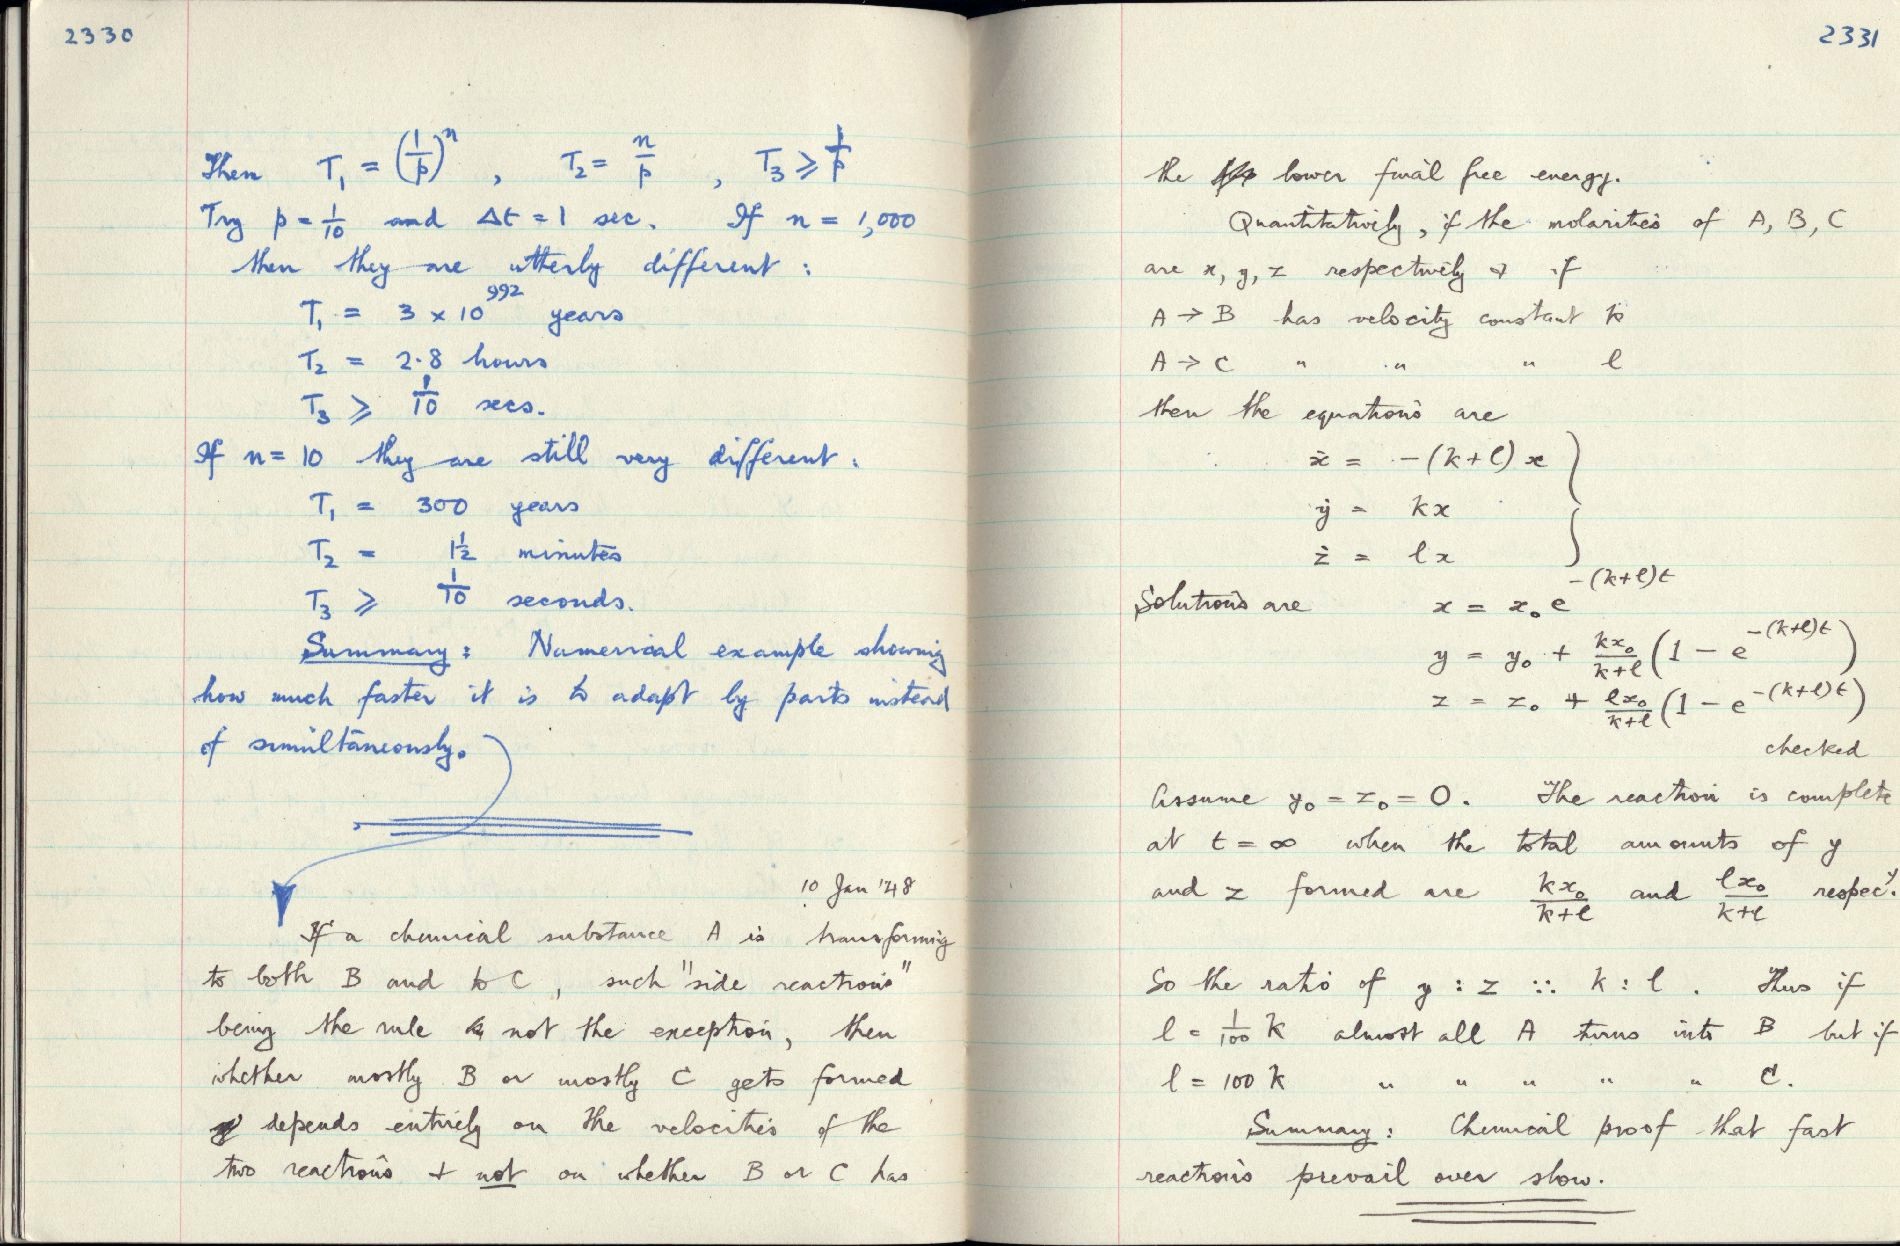 2330
Then T₁ = (1/p)ⁿ , T₂ = n/p , T₃ ⩾ 1/p
Try p = 1/10 and Δt = 1 sec. If n = 1,000
then they are utterly different :
T₁ = 3 × 10⁹⁹² years
T₂ = 2·8 hours
T₃ ⩾ 1/10 secs.
If n = 10 they are still very different :
T₁ = 300 years
T₂ = 1½ minutes
T₃ ⩾ 1/10 seconds.
Summary : Numerical example showing
how much faster it is to adapt by parts instead
of simultaneously.
10 Jan '48
If a chemical substance A is transforming
to both B and to C, such "side reactions"
being the rule not the exception, then
whether mostly B or mostly C gets formed
depends entirely on the velocities of the
two reactions + not on whether B or C has
2331
the lower final free energy.
Quantitatively, if the molarities of A, B, C
are x, y, z respectively + if
A → B has velocity constant k
A → C " " " l
then the equations are
ẋ = -(k+l)x
ẏ = kx
ż = lx
Solutions are x = x₀ e^-(k+l)t
y = y₀ + kx₀/k+l (1 - e^-(k+l)t)
z = z₀ + lx₀/k+l (1 - e^-(k+l)t)
checked
Assume y₀ = z₀ = 0. The reaction is complete
at t = ∞ when the total amounts of y
and z formed are kx₀/k+l and lx₀/k+l respecʸ.
So the ratio of y : z :: k : l . Thus if
l = 1/100 k almost all A turns into B but if
l = 100 k " " " " " C.
Summary : Chemical proof that fast
reactions prevail over slow.